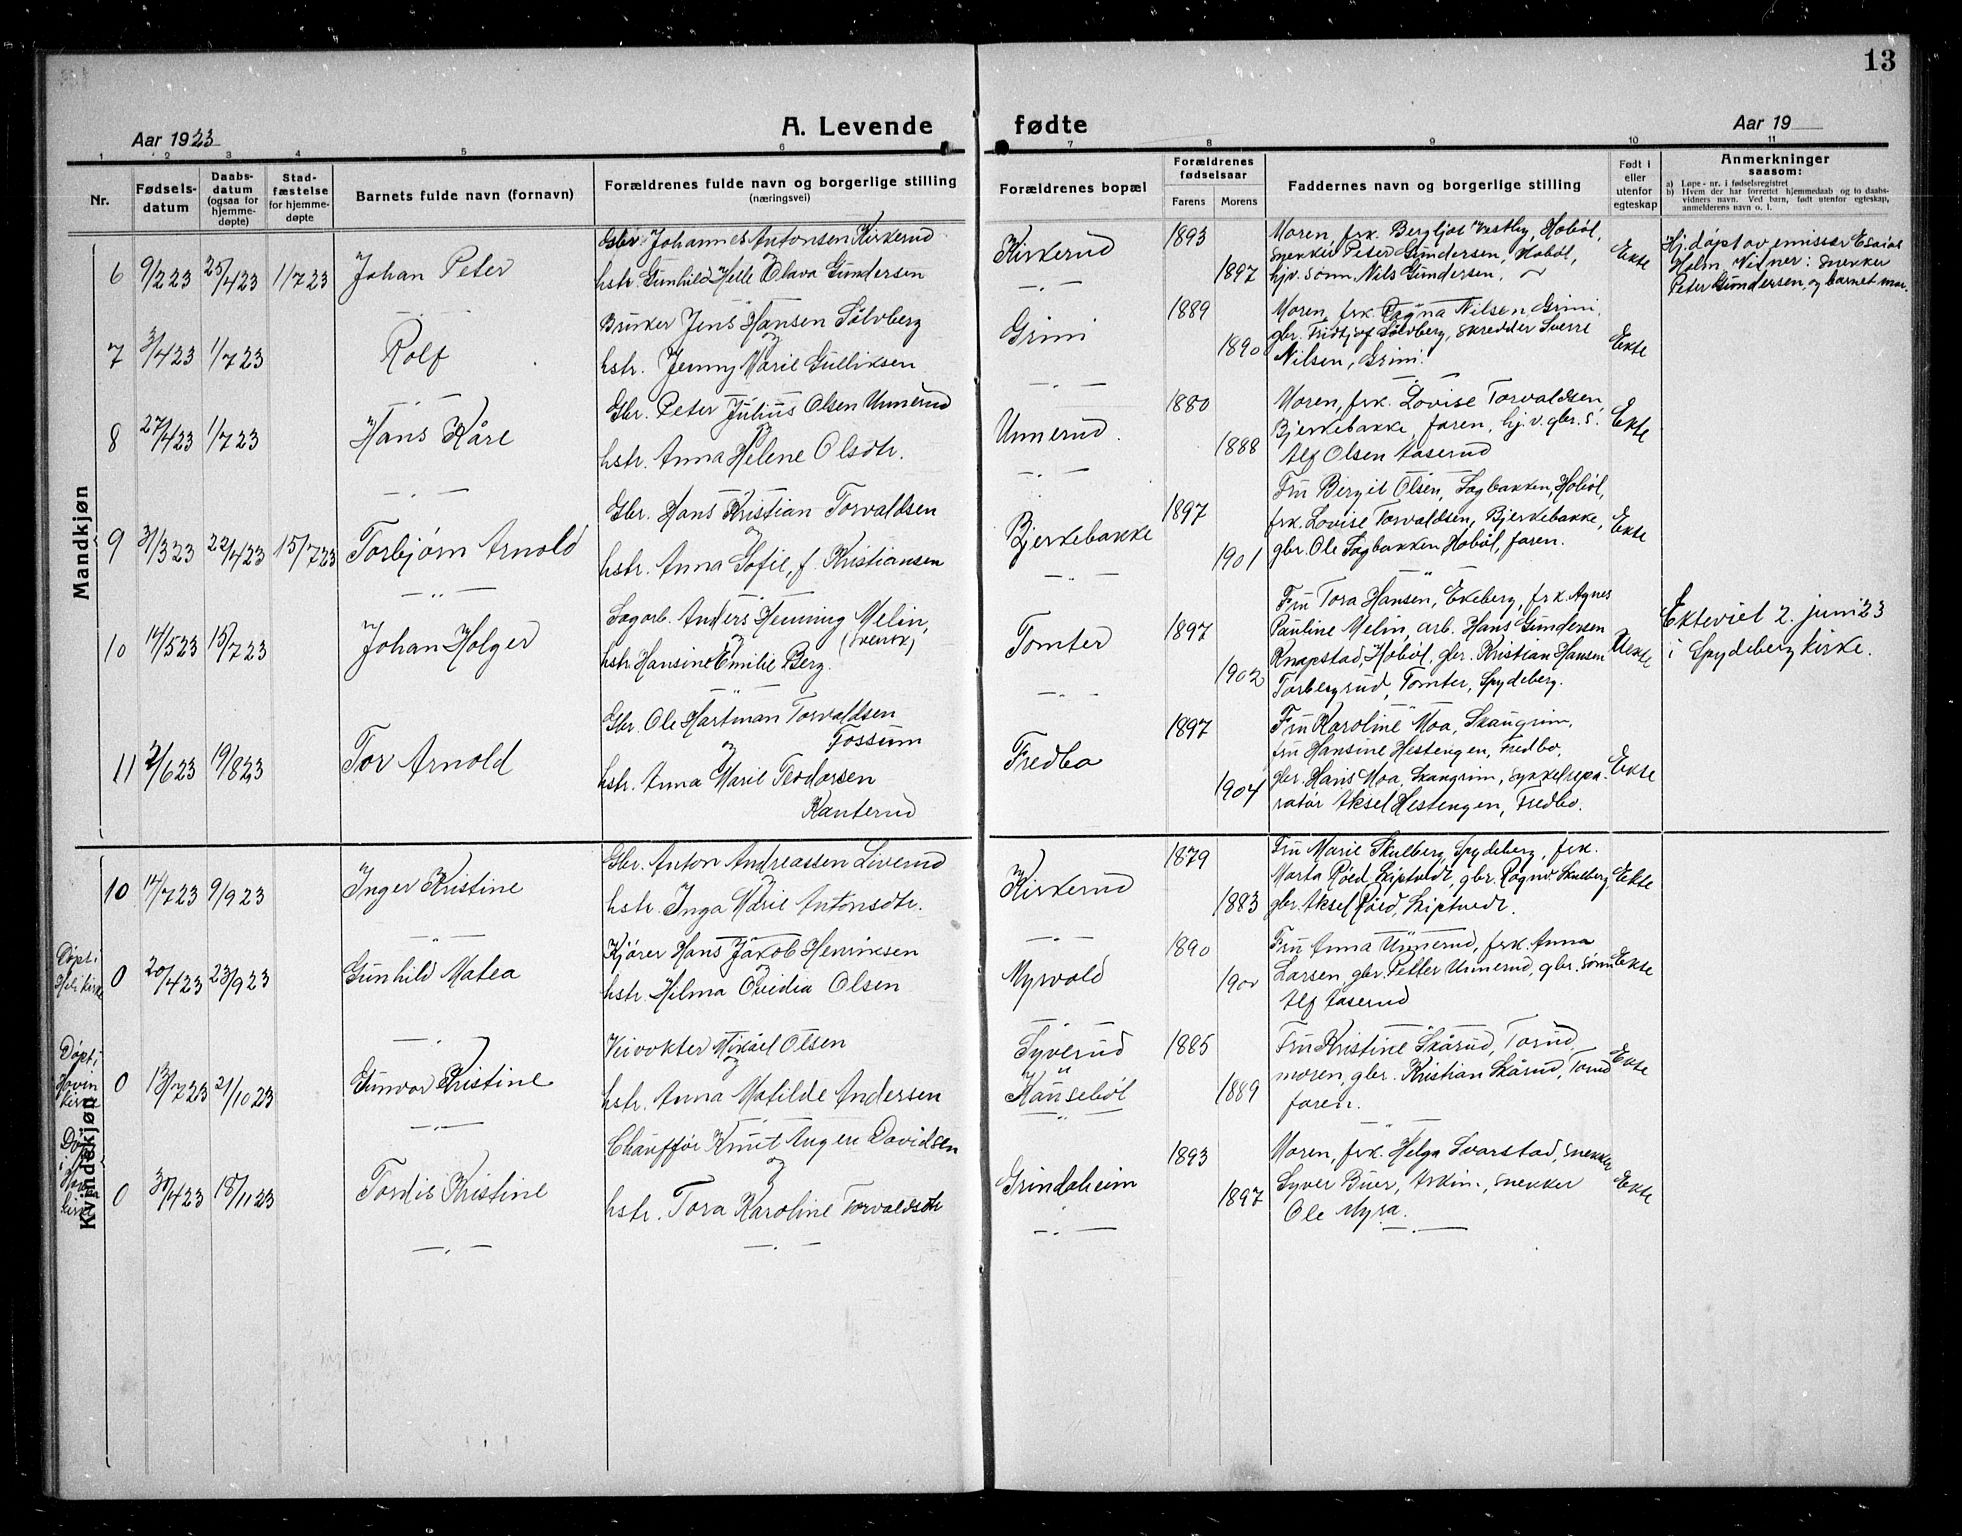 13
Aar 1923
A. Levende fødte
Aar 19
1 2 3 4 5 6 7 8 9 10 11
Nr.
Fødsels-
datum
Daabs-
datum
(ogsaa for
hjemme-
døpte)
Stad-
fæstelse
for hjemme-
døpte
Barnets fulde navn (fornavn)
Forældrenes fulde navn og borgerlige stilling
(næringsvei)
Forældrenes bopæl
Forældrenes
fødselsaar
Farens Morens
Faddernes navn og borgerlige stilling
Født i
eller
utenfor
egteskap
Anmerkninger
saasom:
a) Løpe-nr. i fødselsregistret
b) Hvem der har forrettet hjemmedaab og to daabs-
vidners navn. Ved barn, født utenfor egteskap,
anmelderens navn o. l.
Mandkjøn
6 9/2 23 25/4 23 1/7 23 Johan Peter
Gbr. Johannes Antonsen Kirkerud
og
hstr. Gunhild Helle Olava Gundersen
Kirkerud
1893
1897
Moren, frk. Bergljot Vestby, Hobøl,
snekker Peter Gundersen, Hobøl,
hjv. sønn Nils Gundersen.
Ekte
Hj. døpt av emissær Esaias
Holm. Vidner: snekker
Peter Gundersen, og barnet mor.
7 3/4 23 1/7 23 Rolf
Bruker Jens Hansen Sølvberg
og
hstr. Jenny Marie Gulliksen
Grini
1889
1890
Moren, frk. Ragna Nilsen, Grini,
gbr. Fridtjof Sølvberg, skredder Sverre
Nilsen, Grini.
Ekte
8 27/4 23 1/7 23 Hans Kåre
Gbr. Peter Julius Olsen Unnerud
og
hstr. Anna Helene Olsdtr.
Unnerud.
1880
1888
Moren, frk. Lovise Torvaldsen,
Bjerkebakke, faren, hj. v. gbr. s.
Alf Olsen Aaserud
Ekte
9 31/3 23 22/4 23 15/7 23 Torbjørn Arnold
Gbr. Hans Kristian Torvaldsen
og
hstr. Anna Sofie, f. Kristiansen
Bjerkebakke
1897
1901
Fru Bergit Olsen, Sagbakken, Hobøl,
frk. Lovise Torvaldsen, Bjerkebakke,
gbr. Ole Sagbakken Hobøl, faren.
Ekte
10 14/5 23 15/7 23 Johan Holger
Sagarb. Anders Henning Melin,
og (svensk)
hstr. Hansine Emilie Berg.
Tomter
1897
1902
Fru Tora Hansen, Ekeberg, frk. Agnes
Pauline Melin, arb. Hans Gundersen
Knapstad, Hobøl, gbr. Kristian Hansen
Torbergsrud, Tomter, Spydeberg.
Uekte
Ekteviet 2. juni 23
i Spydeberg kirke.
11 2/6 23 19/8 23 Tor Arnold
Gbr. Ole Hartman Torvaldsen
og Fossum
hstr. Anna Marie Teodorsen
Kanterud
Fredbo
1897
1904
Fru Karoline Moa, Skaugrim,
fru Hansine Hestengen, Fredbo,
gbr. Hans Moa, Skaugrim, sykkelrepa-
ratør Aksel Hestengen, Fredbo.
Ekte
Kvindekjøn
10 14/7 23 9/9 23 Inger Kristine
Gbr. Anton Andreassen Liverud
og
hstr. Inga Marie Antonsdtr.
Kirkerud
1879
1883
Fru Marie Skulberg, Spydeberg, frk.
Marta Røed, Skiptvedt, gbr. Ragnv. Skulberg
gbr. Aksel Røed, Skiptvedt.
Ekte
Døpt i
kirke
0 20/4 23 23/9 23 Gunhild Matea
Kjører Hans Jakob Henriksen
og
hstr. Hilma Ovidia Olsen
Myrvold
1890
Fru Anna Unnerud, frk. Anna
Larsen, gbr. Petter Unnerud, gbr. sønn
Alf Aaserud
Ekte
Døpt i
Hovin
kirke
0 13/7 23 21/10 23 Gunvor Kristine
Veivokter Mikael Olsen
og
hstr. Anna Matilde Andersen
Syverud
Hausebøl
1885
1889
Fru Kristine Skårud, Torud,
moren, gbr. Kristian Skårud, Torud
faren.
Ekte
Døpt
i
kirke
0 3/4 23 18/11 23 Tordis Kristine
Chauffør Knut Angen Davidsen
og
hstr. Tora Karoline Torvaldsdtr
Grindaheim
1893
1897
Moren, frk. Helga Svarstad, snekker
Syver Buer, Askim, snekker
Ole Myra.
Ekte